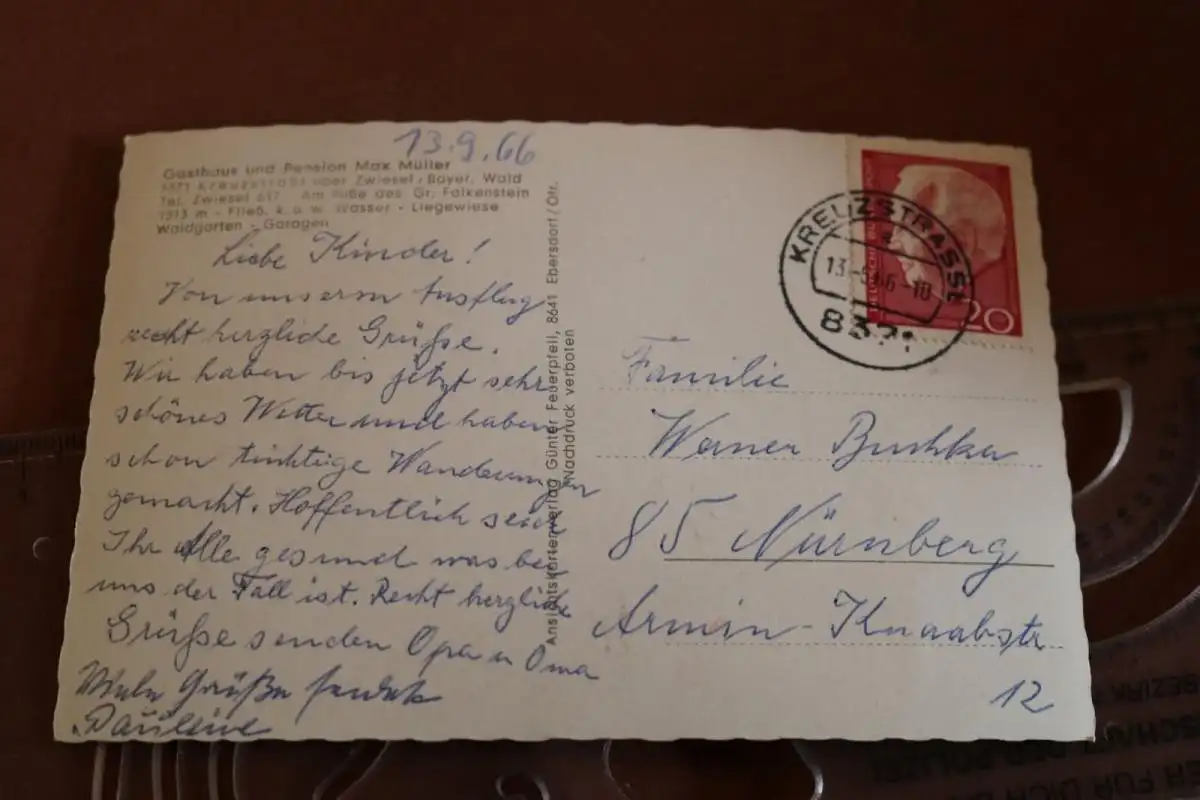 13.9.66
Gasthaus und Pension Max Müller
Kreuzstraßl über Zwiesel / Bayer. Wald
Tel. Zwiesel Am Fuße des Gr. Falkenstein
1313 m - Fließ. k. u. w. Wasser - Liegewiese
Waldgarten - Garagen
Liebe Kinder!
Von unserm Ausflug
recht herzliche Grüße.
Wir haben bis jetzt sehr
schönes Wetter und haben
schon tüchtige Wanderungen
gemacht. Hoffentlich seid
Ihr Alle gesund was bei
uns der Fall ist. Recht herzliche
Grüße senden Opa u Oma
Viele Grüße sendet
Pauline
Ansichtskartenverlag Günter Feuerpfeil, 8641 Ebersdorf/Ofr.
Nachdruck verboten
KREUZSTRASSL
13.-9.66-18
8371
DEUTSCHE BUNDESPOST
20
Familie
Werner Buchka
85 Nürnberg
Armin-Knaabstr.
12
BEZIRK
FÜR DICH